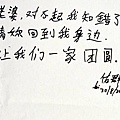 老婆，对不起我知錯了
請妳回到我身边.
让我们一家团圆.